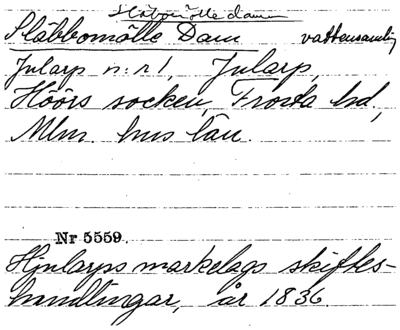 Släbbomölle Dam vattensamling
Jularp n:r 1, Jularp,
Höörs socken, Frosta hd.,
Mlm. hus län.
Nr 5559.
Hjularps markelags skiftes-
handlingar, år 1836.